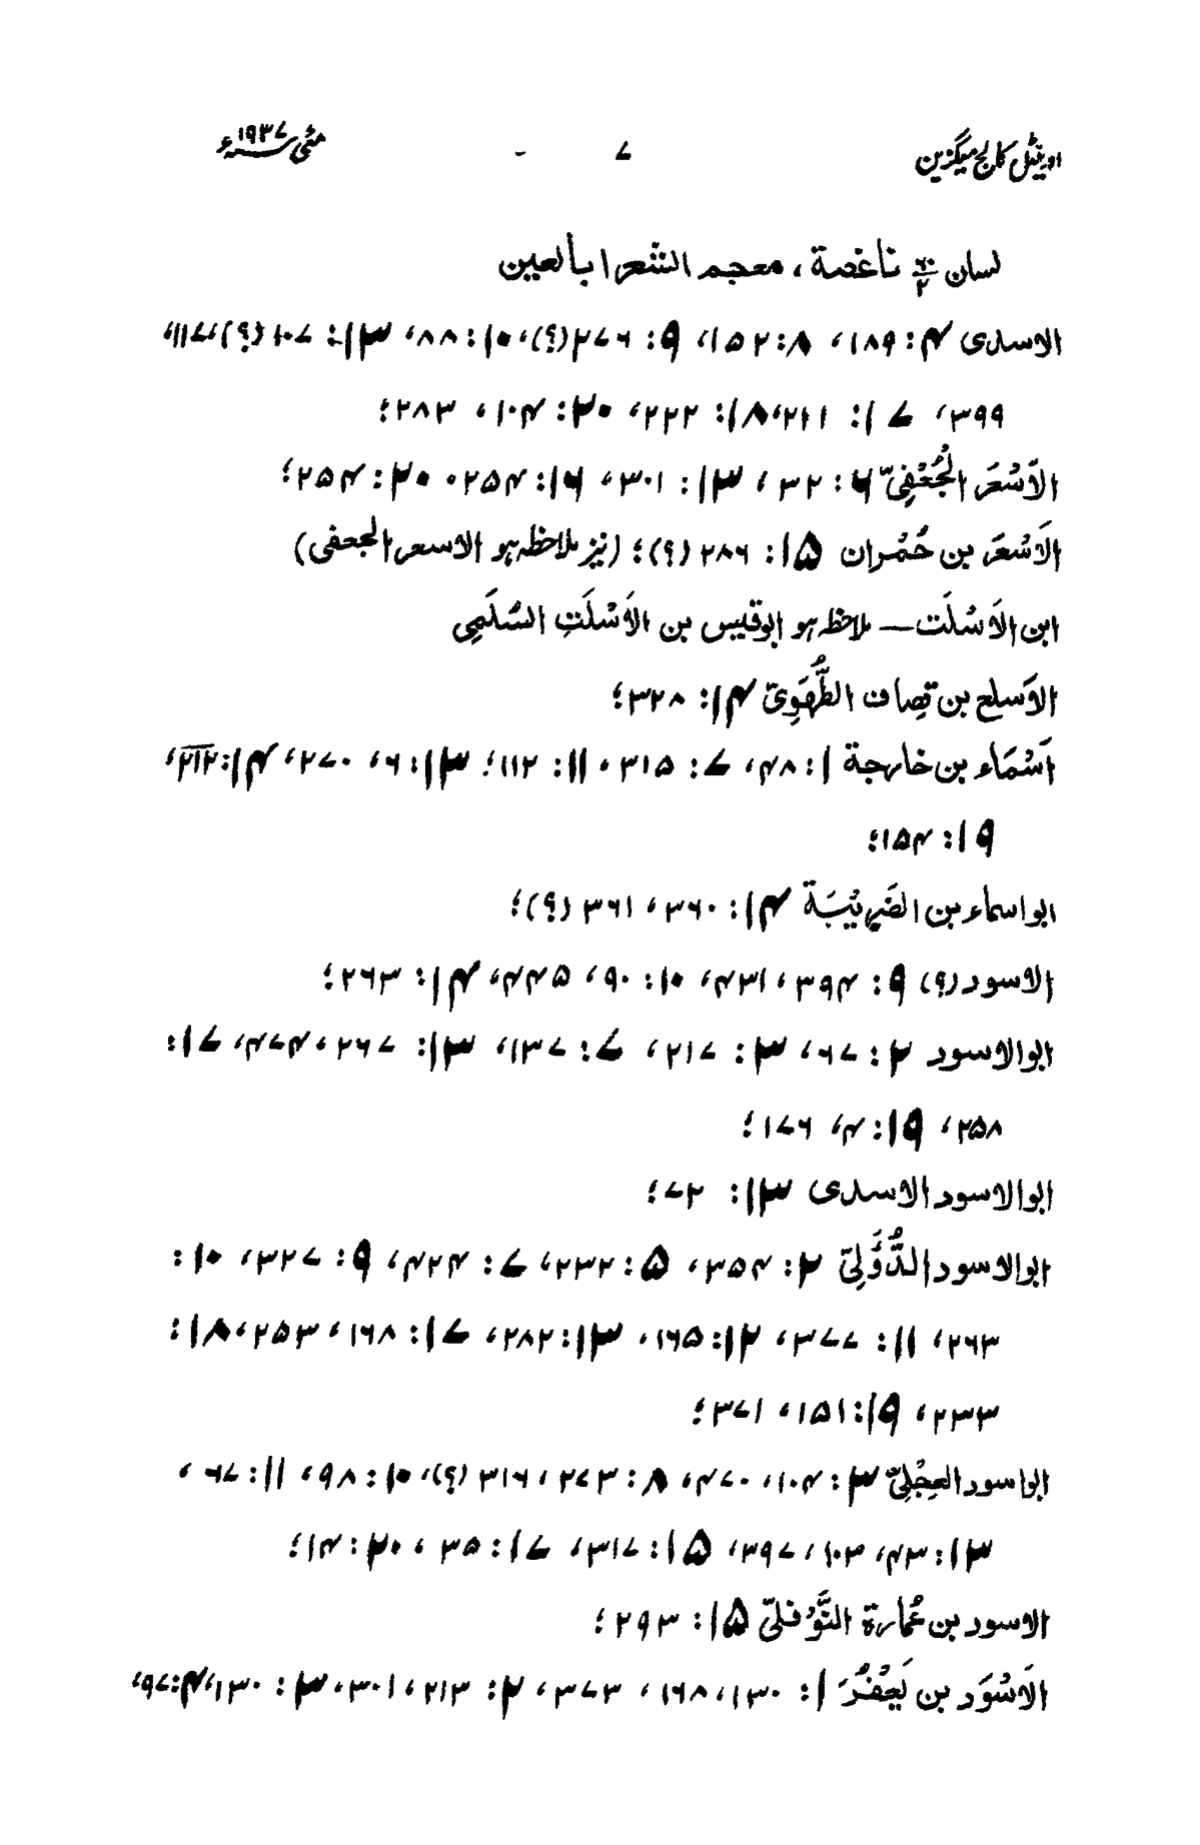 اورینٹل کالج میگزین ۷ - مئی ۱۹۳۷ء
لسان ۲۰/۲ ناغصة، معجم الشعرا بألعین
الاسدی ۴: ۱۸۹، ۸: ۱۵۲، ۹: ۲۷۶(؟)، ۱۰: ۸۸، ۱۳: ۱۰۷ (؟)، ۱۱۷،
۳۹۹، ۱۷: ۲۱۱، ۱۸: ۲۲۲، ۲۰: ۱۰۴، ۲۸۳؛
الْاَسْعَرَ الْجُعْفِیّ ۲: ۳۲، ۱۳: ۳۰۱، ۱۶: ۲۵۴، ۲۰: ۲۵۴؛
الْاَسْعَرَ بن حُمْران ۱۵: ۲۸۶ (؟)؛ (نیز ملاحظہ ہو الاسعر الجعفی)
ابن الْاَسْلَت — ملاحظہ ہو ابوقیس بن الْاَسْلَتِ السُّلَمِی
الْاَسلع بن قِصاف الطُّهَوِیّ ۱۴: ۳۲۸؛
اَسْمَاء بن خارجة ۱: ۴۸، ۷: ۳۱۵، ۱۱: ۱۱۲؛ ۱۳: ۶، ۲۷۰، ۱۴: ۲۱۲،
۱۹: ۱۵۴؛
ابو اسماء بن الضَرِیْبَة ۱۴: ۳۶۰، ۳۶۱ (؟)؛
الاسود (؟) ۹: ۳۹۴، ۴۳۱، ۱۰: ۹۰، ۴۴۵، ۱۴: ۲۶۳؛
ابوالاسود ۲: ۶۷، ۳: ۲۱۷، ۷: ۱۳۷، ۱۳: ۲۶۷، ۴۷۴، ۱۷:
۲۵۸، ۱۹: ۴، ۱۷۶؛
ابوالاسود الاسدی ۱۳: ۷۲؛
ابوالاسود الدُّؤَلِیّ ۲: ۳۵۴، ۵: ۲۳۲، ۷: ۴۲۴، ۹: ۳۲۷، ۱۰:
۲۶۳، ۱۱: ۳۷۷، ۱۲: ۱۶۵، ۱۳: ۲۸۲، ۱۷: ۱۶۸، ۲۵۳، ۱۸:
۲۳۳، ۱۹: ۱۵۱، ۳۷۱؛
ابو اسود العِجْلِیّ ۳: ۱۰۴، ۴۷۰، ۸: ۲۷۳، ۳۱۶ (؟)، ۱۰: ۸۹، ۱۱: ۶۷،
۱۳: ۴۳، ۱۰۳، ۳۹۷، ۱۵: ۳۱۷، ۱۷: ۳۵، ۲۰: ۱۴؛
الاسود بن عُمارة النَّوْفلیّ ۱۵: ۲۹۳؛
الْاَسْوَد بن یَعْفُرَ ۱: ۱۳۰، ۱۶۸، ۳۷۳، ۲: ۲۱۳، ۳۰۱، ۳: ۱۳۰، ۴: ۹۷،